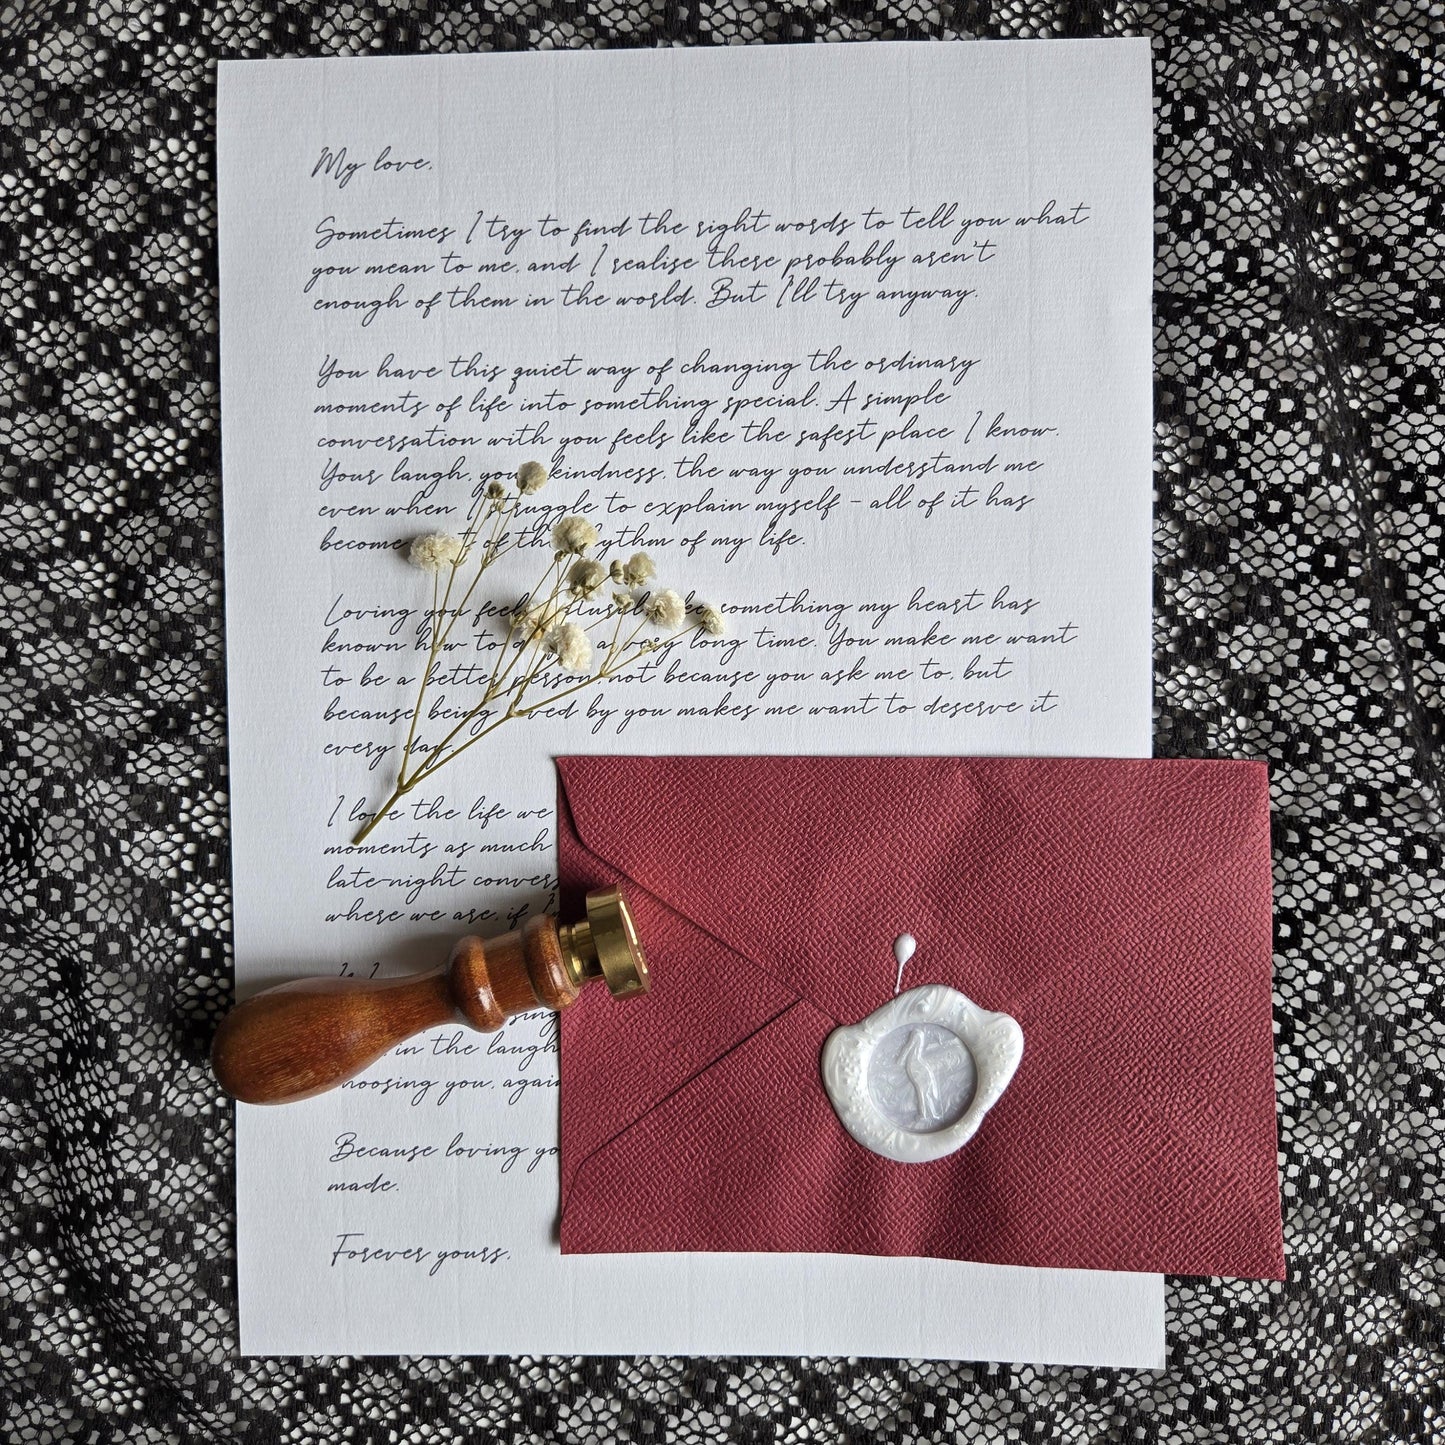 My love,
Sometimes I try to find the right words to tell you what
you mean to me, and I realise there probably aren't
enough of them in the world. But I'll try anyway.
You have this quiet way of changing the ordinary
moments of life into something special. A simple
conversation with you feels like the safest place I know.
Your laugh, your kindness, the way you understand me
even when I struggle to explain myself - all of it has
become of the rhythm of my life.
Loving you feels something my heart has
known how to a very long time. You make me want
to be a better person, not because you ask me to, but
because being loved by you makes me want to deserve it
every day.
I love the life we
moments as much
late-night
where we are, if
in the laugh
choosing you, again
Because loving
made.
Forever yours,